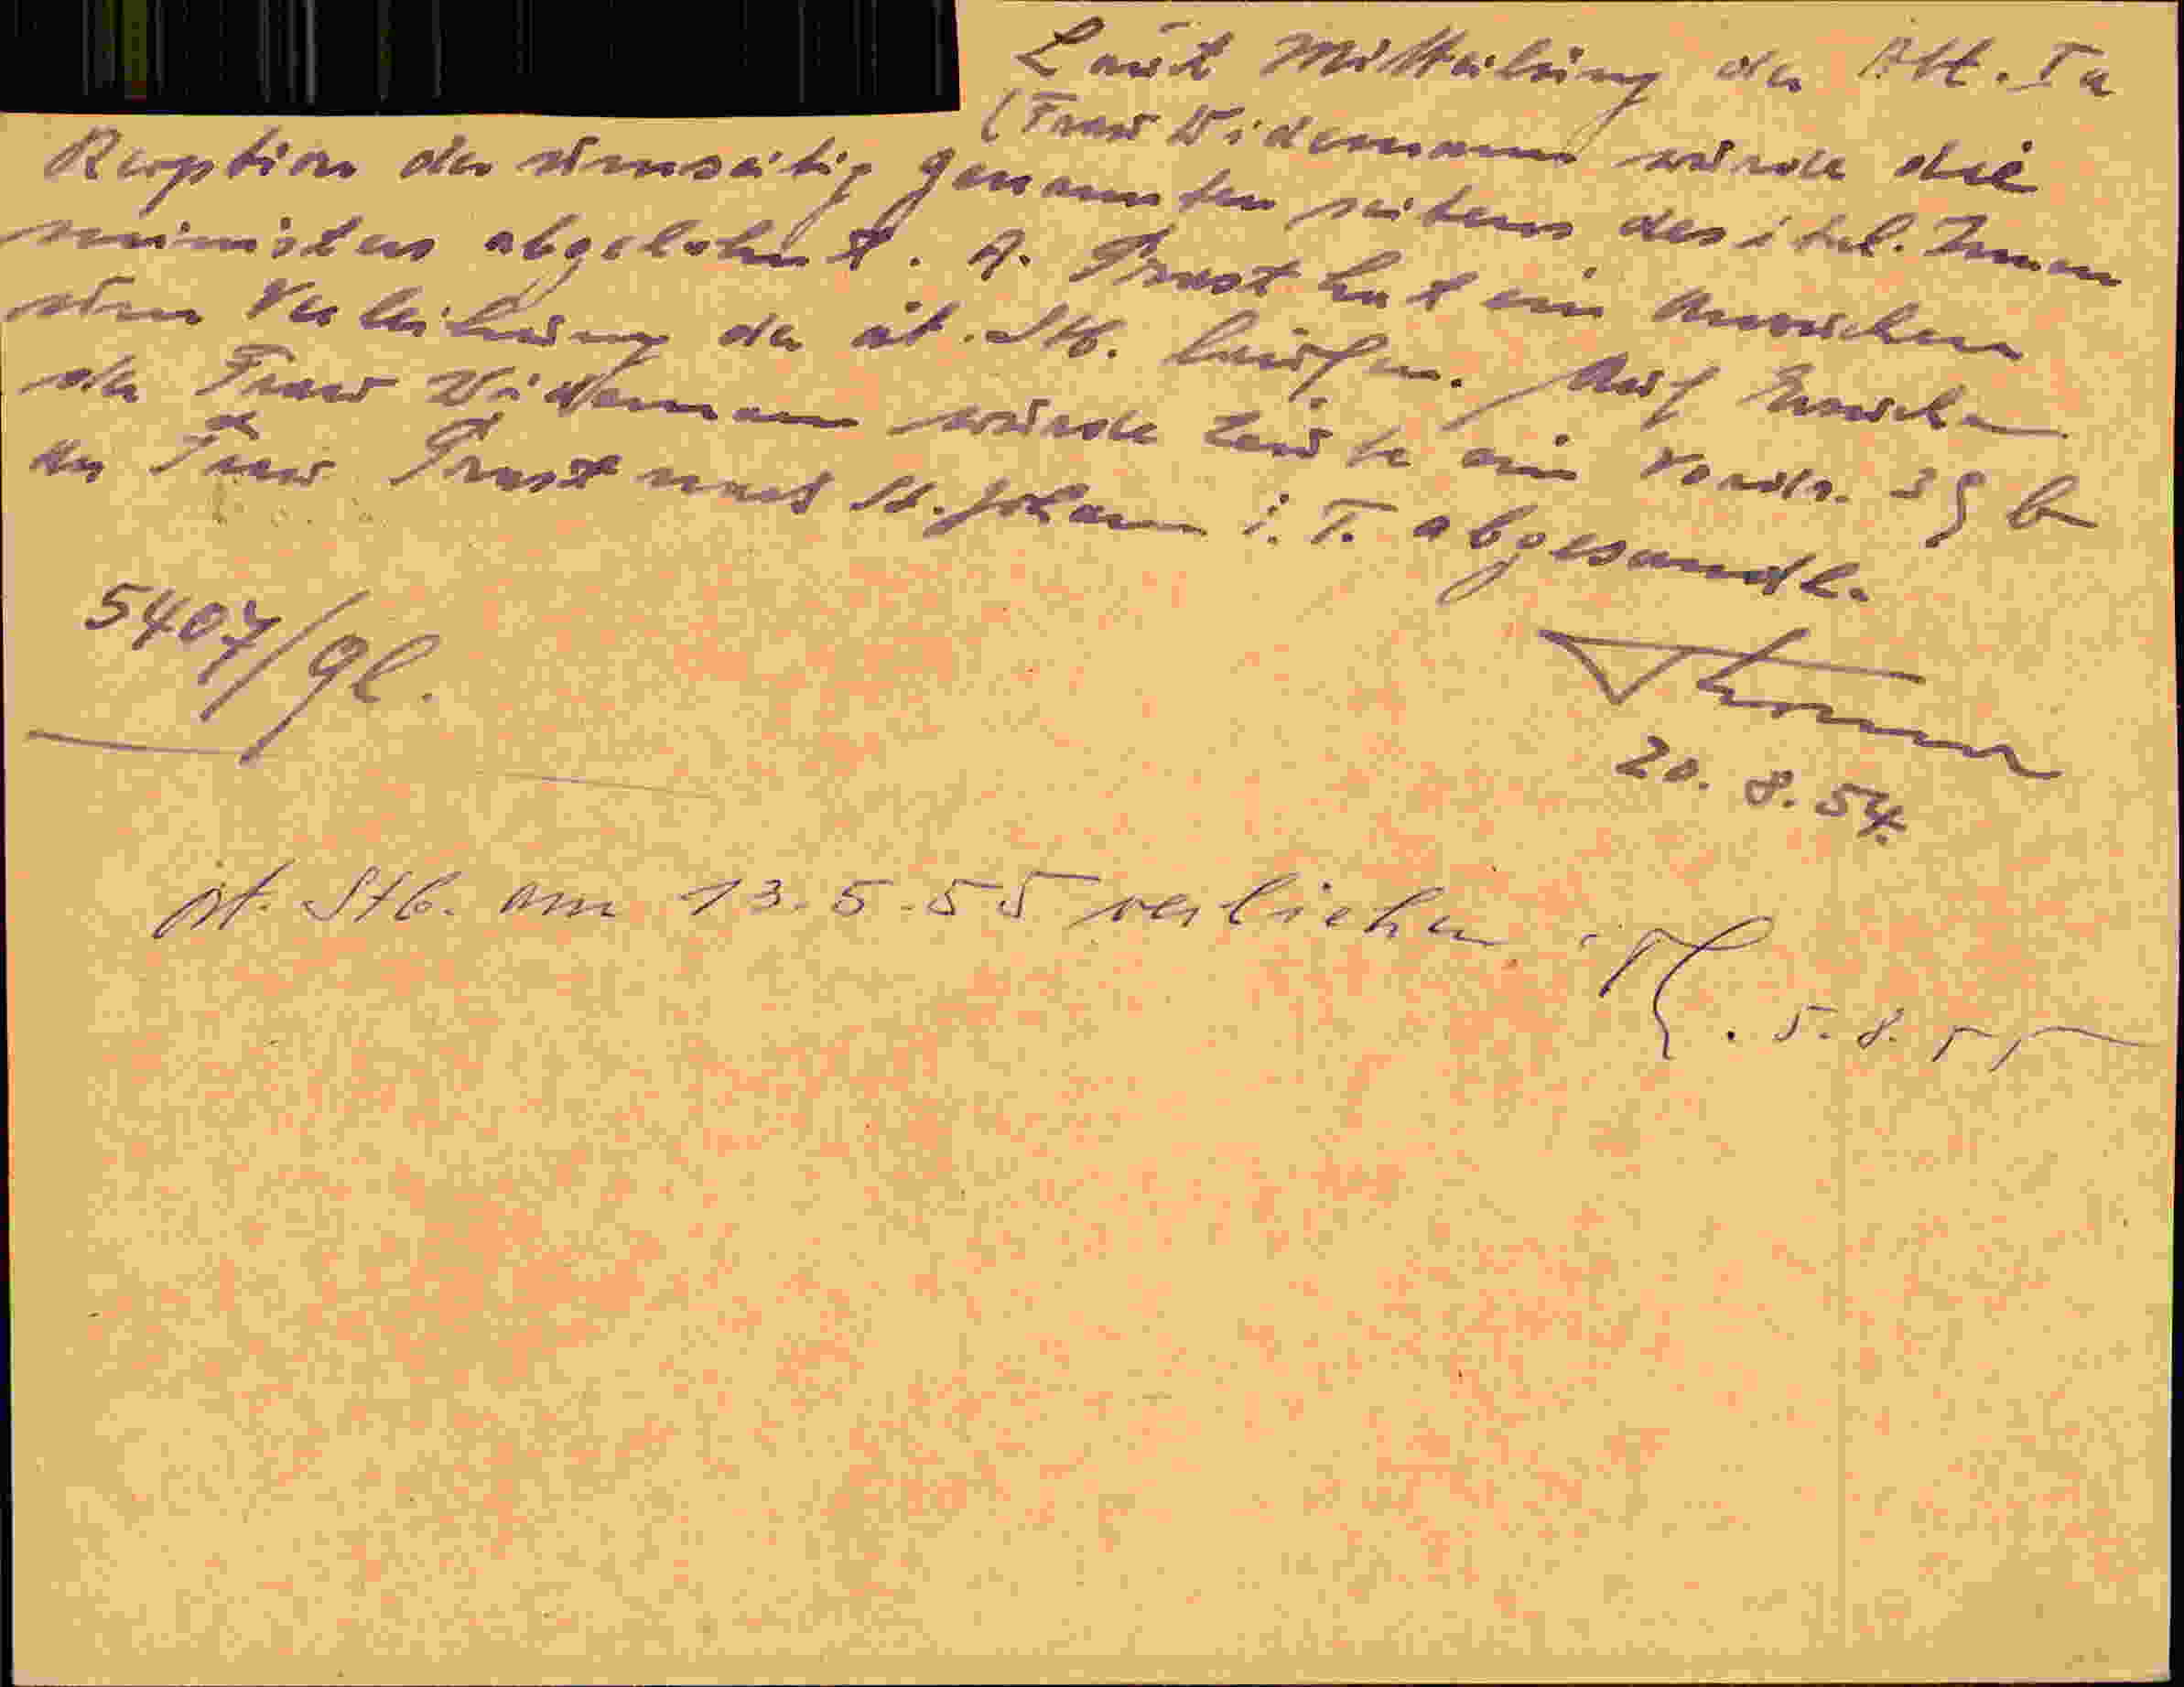 Laut Mitteilung der Abt. Ia
(Frau Widemann wurde die
Rezeption der umseitig genannten seitens des ital. Innen
ministers abgelehnt. A. Prast hat ein Ansuchen
um Verleihung der öt. Stb. laufen. Auf Ersuchen
der Frau Widemann wurde heute ein Vordr. 3 § b
an Frau Prast nach St. Johann i. T. abgesandt.
5407/gl.
20. 8. 54.
öst. Stb. am 13.5.55 verliehen
5. 8. 55